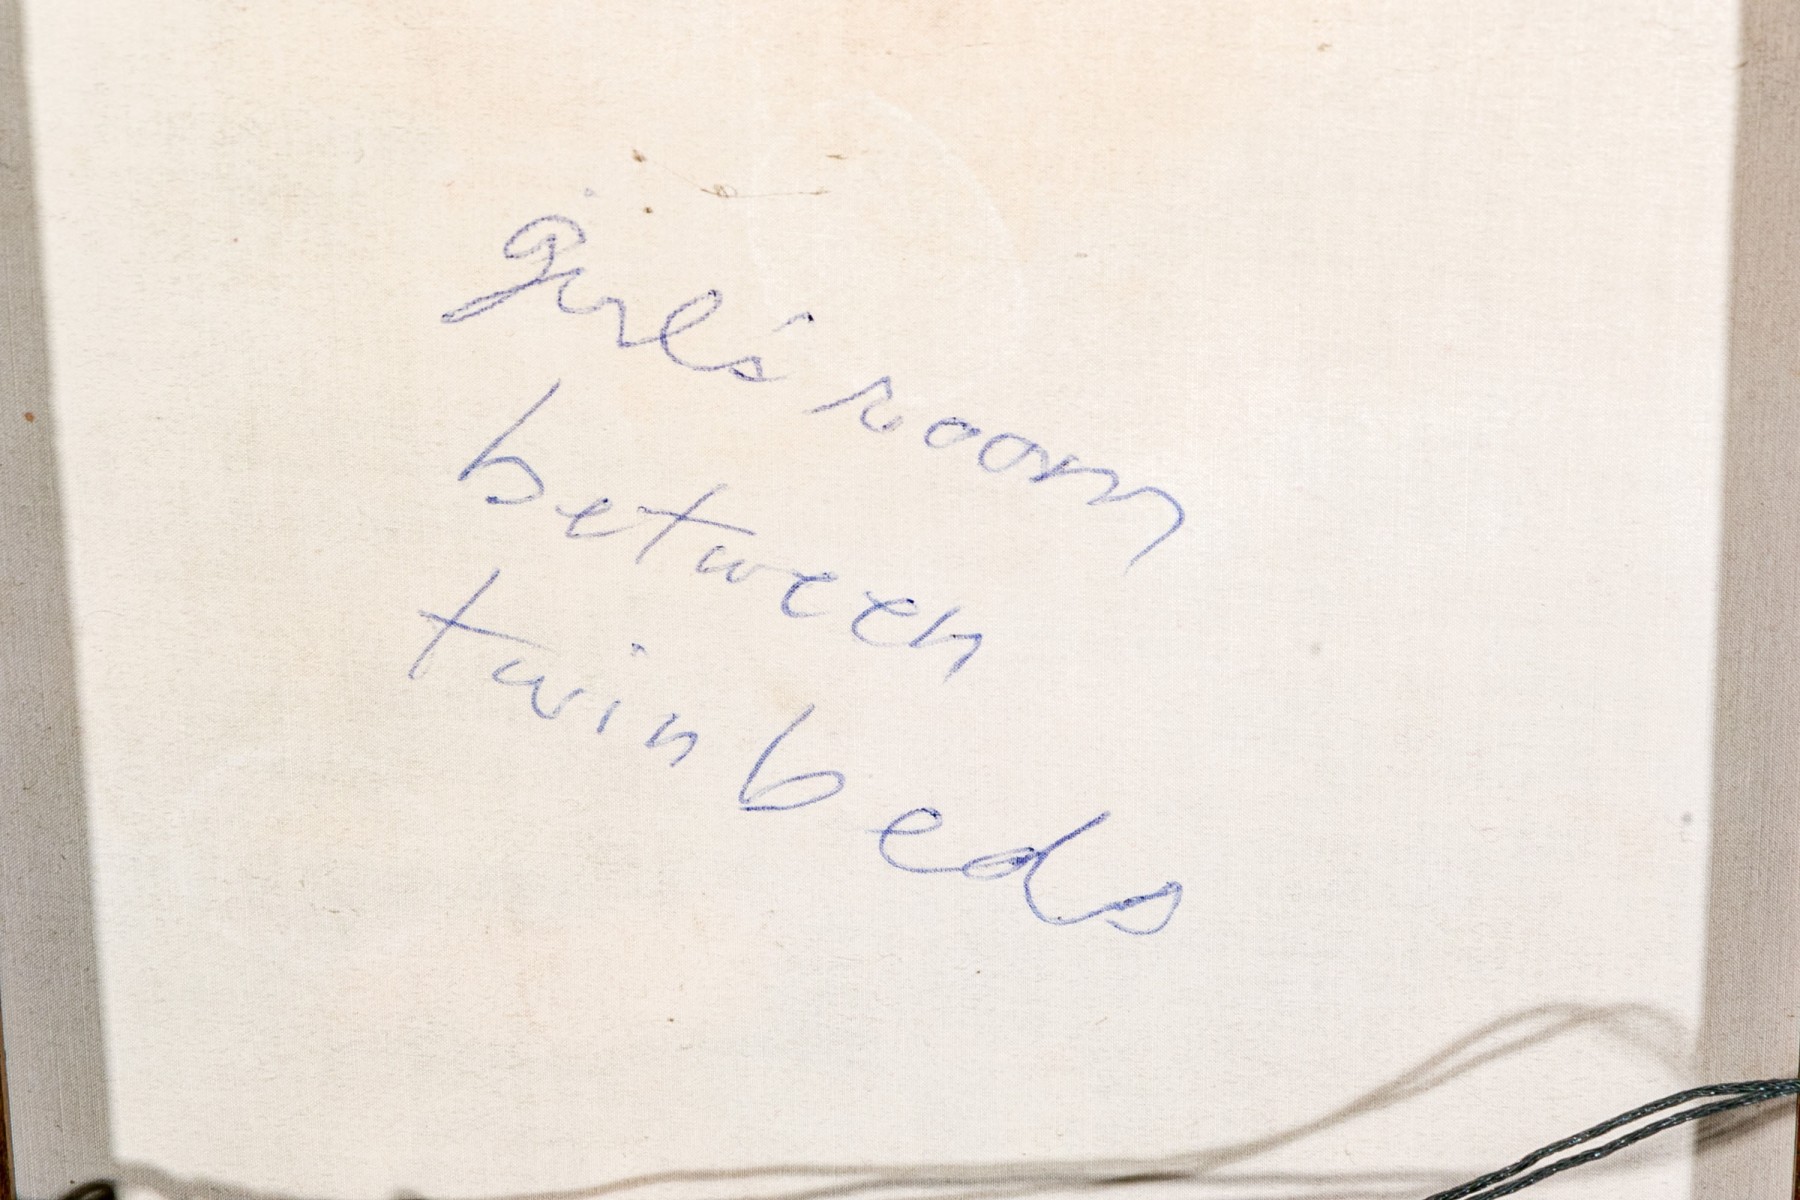 girl's room
between
twin beds